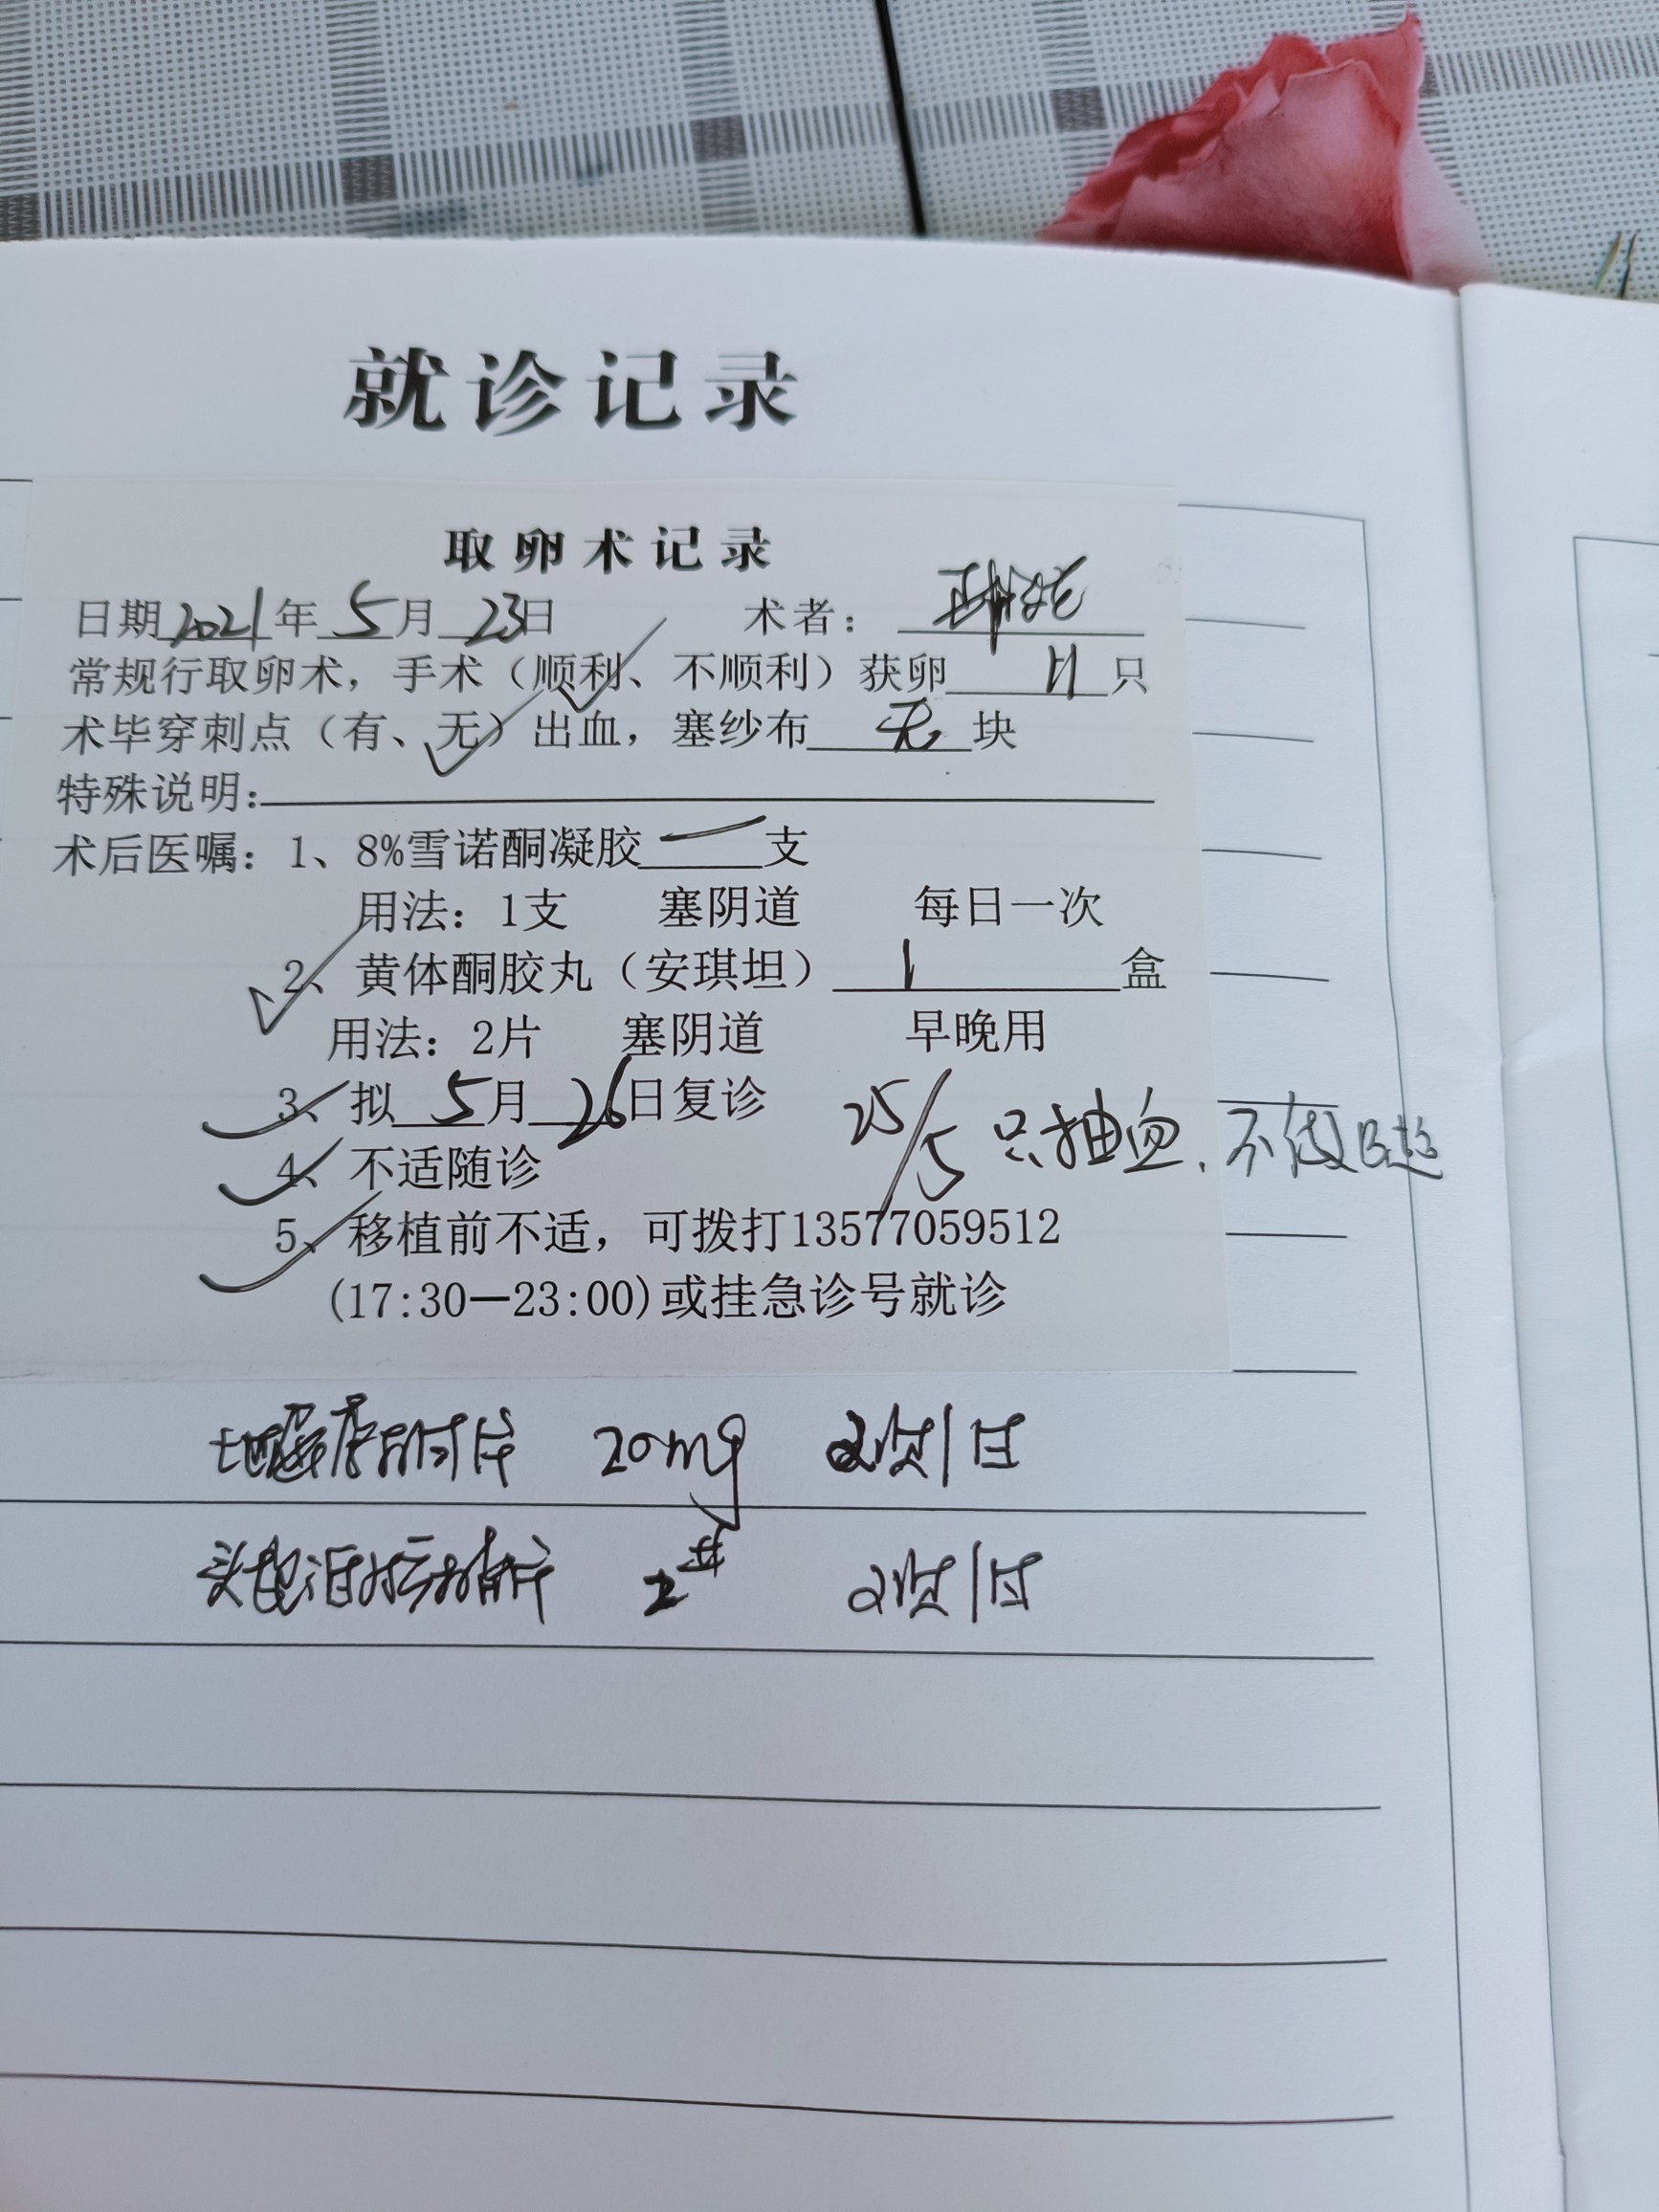 就诊记录
取卵术记录
日期2021年5月23日 术者：
常规行取卵术，手术（顺利、不顺利）获卵11只
术毕穿刺点（有、无）出血，塞纱布无块
特殊说明：
术后医嘱：1、8%雪诺酮凝胶一支
用法：1支 塞阴道 每日一次
2、黄体酮胶丸（安琪坦）1盒
用法：2片 塞阴道 早晚用
3、拟5月26日复诊
25/5 只抽血，不做B超
4、不适随诊
5、移植前不适，可拨打13577059512
(17:30—23:00)或挂急诊号就诊
地屈孕酮片 20mg 2次/日
头孢 片 2# 2次/日